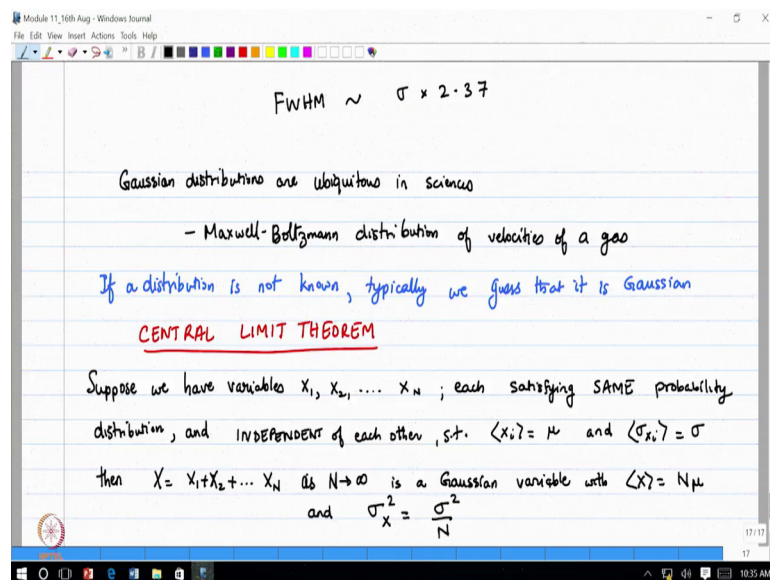 Module 11_16th Aug - Windows Journal
File Edit View Insert Actions Tools Help
FWHM ~ σ × 2.37
Gaussian distributions are ubiquitous in sciences
- Maxwell-Boltzmann distribution of velocities of a gas
If a distribution is not known, typically we guess that it is Gaussian
CENTRAL LIMIT THEOREM
Suppose we have variables X₁, X₂, .... X_N ; each satisfying SAME probability
distribution, and INDEPENDENT of each other, s.t. ⟨x_i⟩ = μ and ⟨σ_{x_i}⟩ = σ
then X = X₁+X₂+... X_N as N→∞ is a Gaussian variable with ⟨X⟩ = Nμ
and σ_X² = σ²/N
17/17
17
10:35 AM